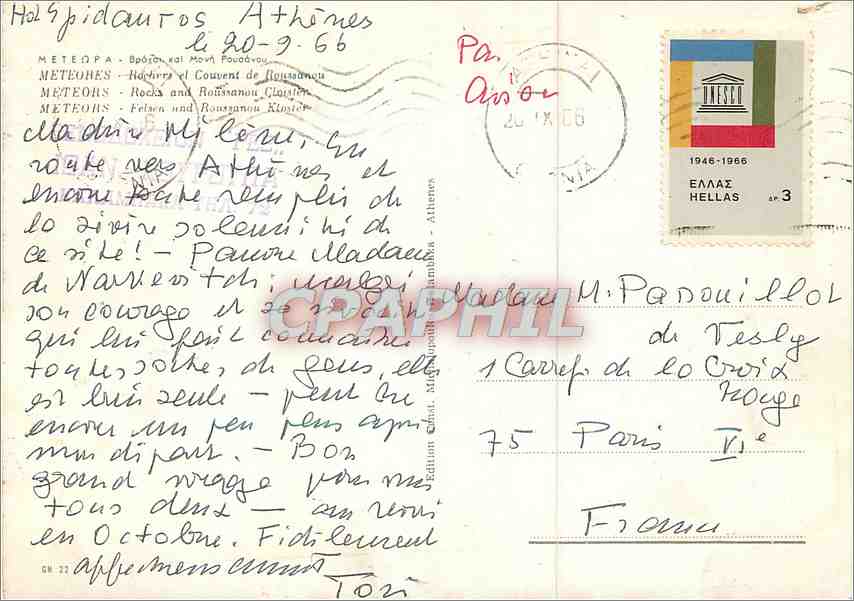 Hot. Epidauros Athènes
le 20-9-66
ΜΕΤΕΩΡΑ - Βράχοι καὶ Μονὴ Ρουσάνου
METEORES - Rochers et Couvent de Roussanou
METEORS - Rocks and Roussanou Cloister
METEORS - Felsen und Roussanou Kloster
en
route vers Athènes et
encore toute remplie de
la divine solennité de
ce site! - Pauvre Madame
de malgré
son courage et sa
qui lui fait connaître
toutes sortes de gens, elle
est bien seule - peut être
encore un peu plus après
mon départ. - Bon
grand voyage pour vous
tous deux - au revoir
en Octobre. Fidèlement
Tosi
GR 22
Edition Const. Kalambaka - Athenes
Par
Avion
UNESCO
1946-1966
ΕΛΛΑΣ
HELLAS ΔΡ. 3
Madame M. Parouillot
de Vesly
1 Carref. de la Croix
Rouge
75 Paris VIe
France
CPAPHIL